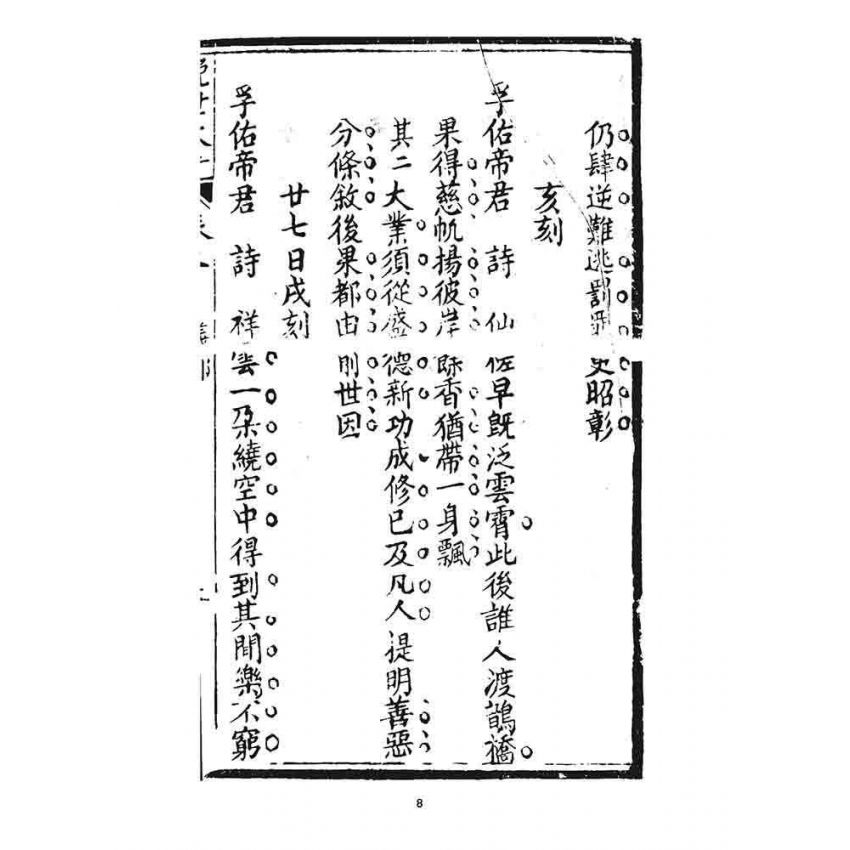 仍肆逆難逃罰 昭彰
亥刻
孚佑帝君 詩 仙 早既泛雲霄此後誰人渡鵲橋
果得慈帆揚彼岸 香猶帶一身飄
其二 大業須從盛德新功成修已及凡人提明善惡
分條敘後果都由 世因
廿七日戌刻
孚佑帝君 詩 祥雲一朶繞空中得到其聞樂不窮
8